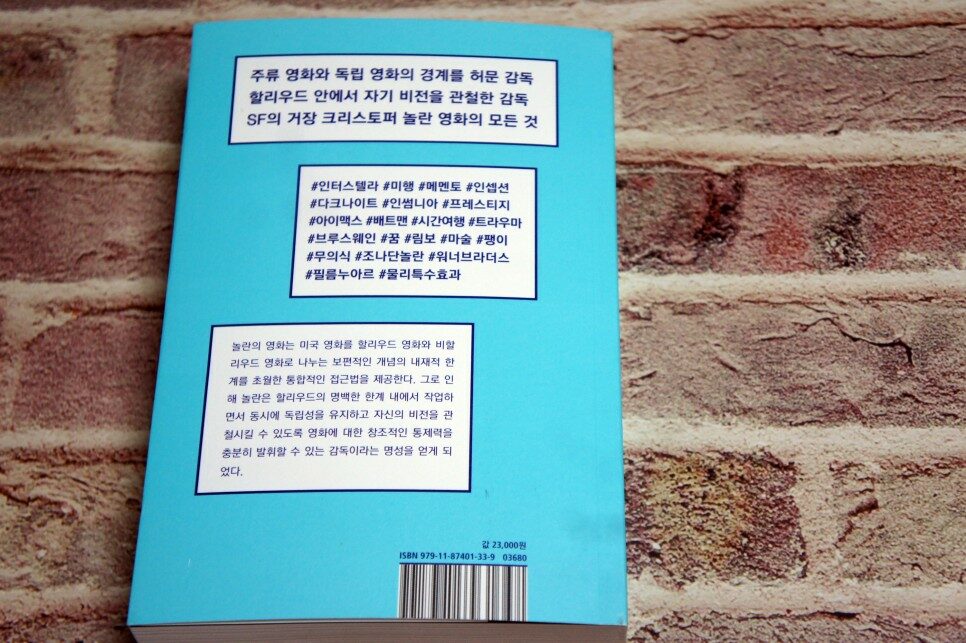 주류 영화와 독립 영화의 경계를 허문 감독
할리우드 안에서 자기 비전을 관철한 감독
SF의 거장 크리스토퍼 놀란 영화의 모든 것
#인터스텔라 #미행 #메멘토 #인셉션
#다크나이트 #인썸니아 #프레스티지
#아이맥스 #배트맨 #시간여행 #트라우마
#브루스웨인 #꿈 #림보 #마술 #팽이
#무의식 #조나단놀란 #워너브라더스
#필름누아르 #물리특수효과
놀란의 영화는 미국 영화를 할리우드 영화와 비할
리우드 영화로 나누는 보편적인 개념의 내재적 한
계를 초월한 통합적인 접근법을 제공한다. 그로 인
해 놀란은 할리우드의 명백한 한계 내에서 작업하
면서 동시에 독립성을 유지하고 자신의 비전을 관
철시킬 수 있도록 영화에 대한 창조적인 통제력을
충분히 발휘할 수 있는 감독이라는 명성을 얻게 되
었다.
값 23,000원
ISBN 979-11-87401-33-9 03680